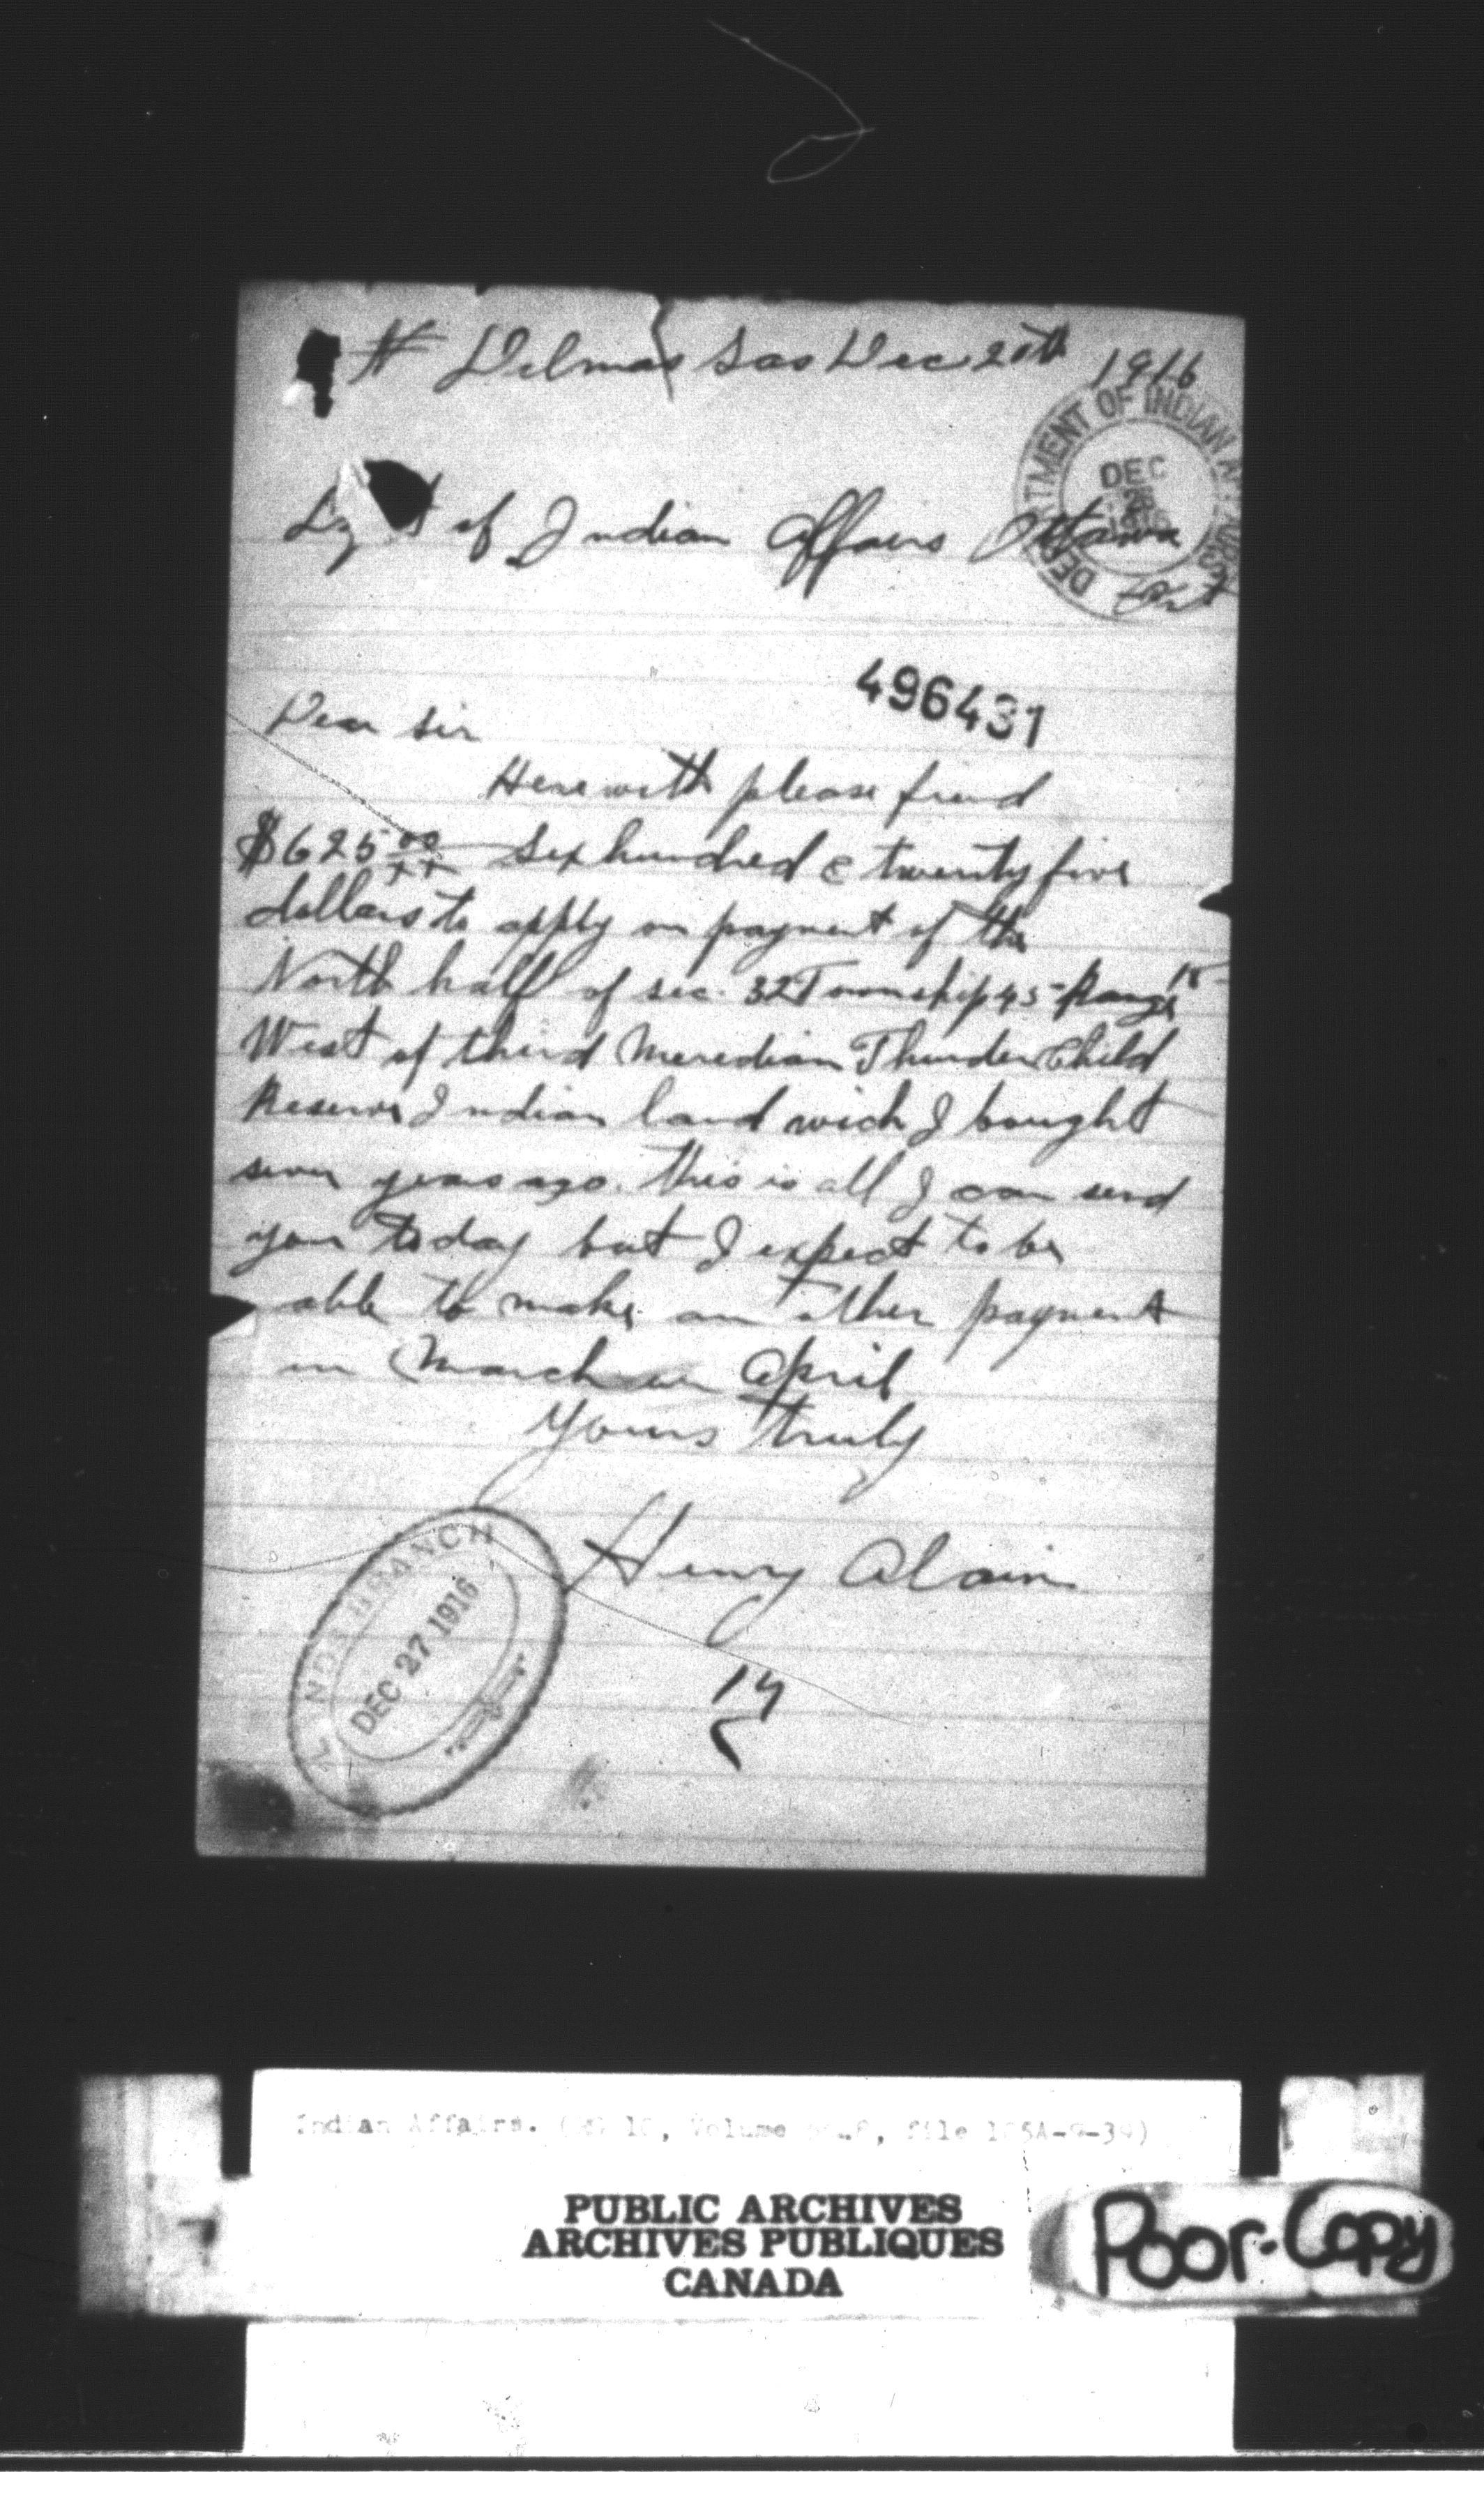 # Delmas Sas Dec 20th 1916
of Indian Affairs Ottawa
Ont
DEPARTMENT OF INDIAN AFFAIRS
DEC
26
1916
496431
Dear Sir
Herewith please find
$625 00/xx Six hundred & twenty five
dollars to apply on payment of the
North half of sec. 32 Township 45 - Range 18
West of third Meridian Thunder Child
Reserve Indian land wich I bought
seven years ago. this is all I can send
you to day but I expect to be
able to make an other payment
in March or April
Yours truly
Henry Alain
BRANCH
DEC 27 1916
Indian Affairs. (RG 10, Volume file
PUBLIC ARCHIVES
ARCHIVES PUBLIQUES
CANADA
Poor-Copy